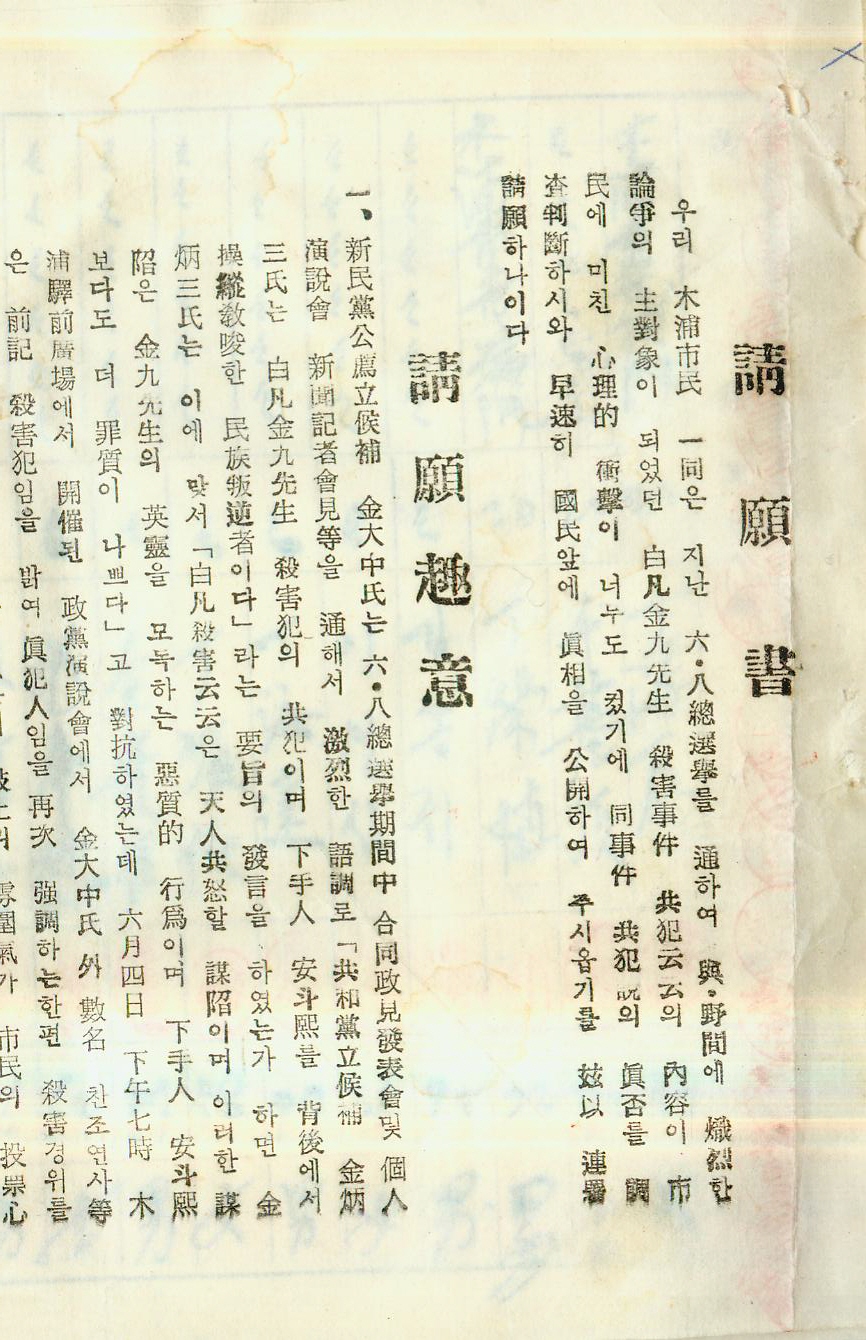 請願書
우리 木浦市民 一同은 지난 六·八總選擧를 通하여 與·野間에 熾烈한
論爭의 主對象이 되었던 白凡金九先生 殺害事件 共犯云云의 內容이 市
民에 미친 心理的 衝擊이 너누도 컸기에 同事件 共犯說의 眞否를 調
査判斷하시와 早速히 國民앞에 眞相을 公開하여 주시옵기를 玆以 連署
請願하나이다
請願趣意
一、新民黨公薦立候補 金大中氏는 六·八總選擧期間中 合同政見發表會및 個人
演說會 新聞記者會見等을 通해서 激烈한 語調로 「共和黨立候補 金炳
三氏는 白凡金九先生 殺害犯의 共犯이며 下手人 安斗熙를 背後에서
操縱敎唆한 民族叛逆者이다」라는 要旨의 發言을 하였는가 하면 金
炳三氏는 이에 맞서 「白凡殺害云云은 天人共怒할 謀陷이며 이러한 謀
陷은 金九先生의 英靈을 모독하는 惡質的 行爲이며 下手人 安斗熙
보다도 더 罪質이 나쁘다」고 對抗하였는데 六月四日 下午七時 木
浦驛前廣場에서 開催된 政黨演說會에서 金大中氏 外 數名 찬조연사等
은 前記 殺害犯임을 밝여 眞犯人임을 再次 强調하는한편 殺害경위를
雰圍氣가 市民의 投票心